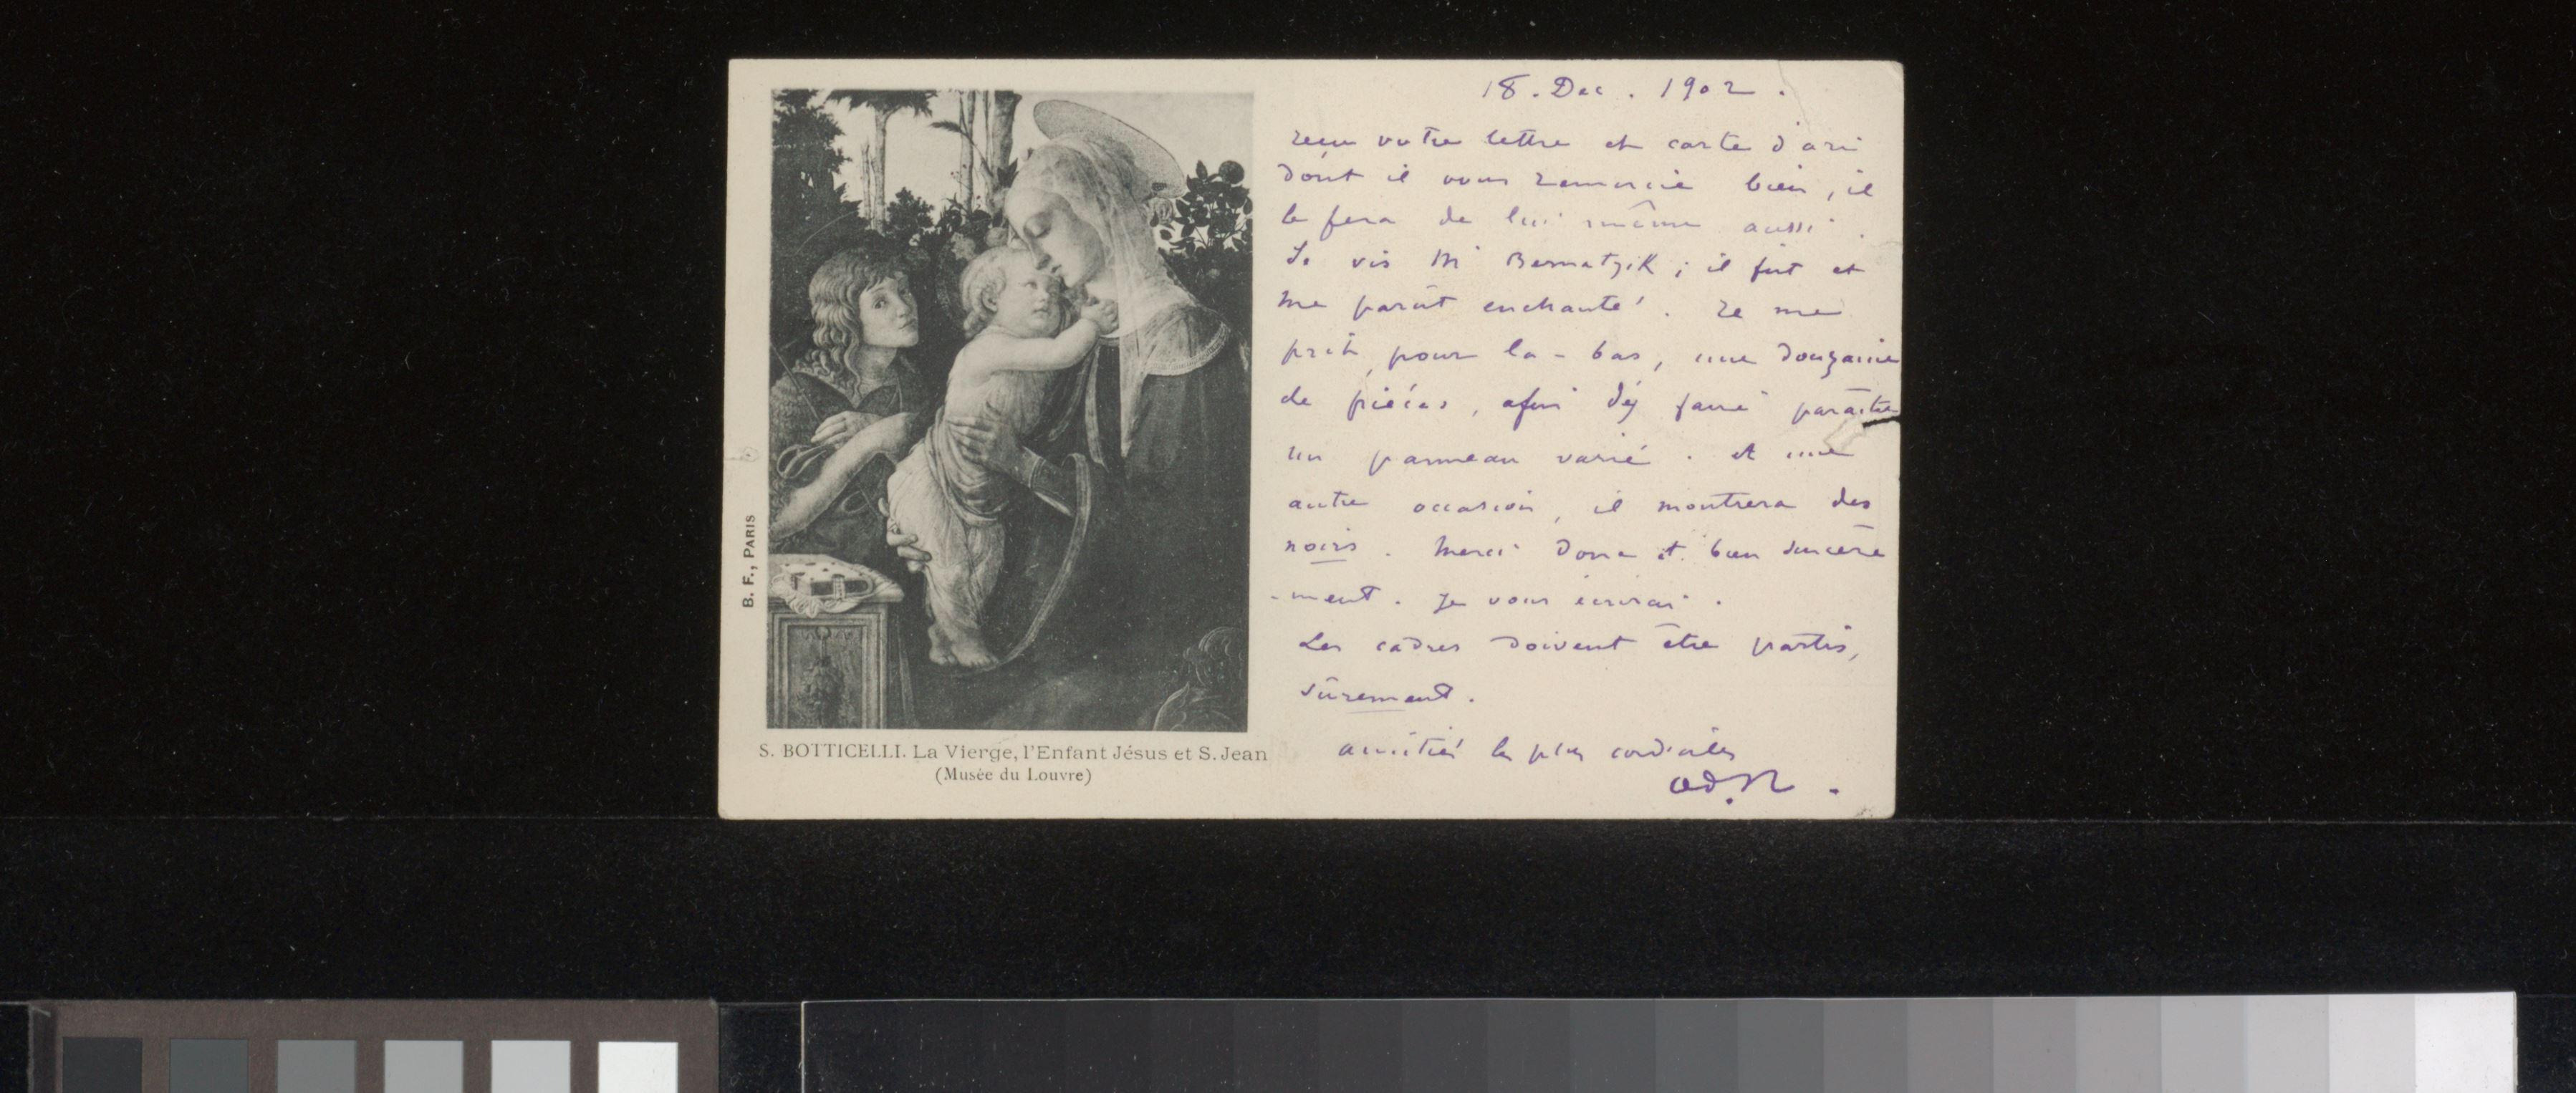 B. F., PARIS
S. BOTTICELLI. La Vierge, l'Enfant Jésus et S. Jean
(Musée du Louvre)
18. Dec. 1902.
reçu votre lettre et carte d'ari
dont il vous remercie bien, il
le fera de lui même aussi.
Je vis Mr Bernatzik ; il fut et
me parût enchanté. Il me
prit, pour la-bas, une douzaine
de pièces, afin d'y faire paraître
un panneau varié. et une
autre occasion, il montrera des
noirs. Merci donc et bien sincère
-ment. Je vous écrirai.
Les cadres doivent être partis,
sûrement.
amitiés les plus cordiales
OD.R.